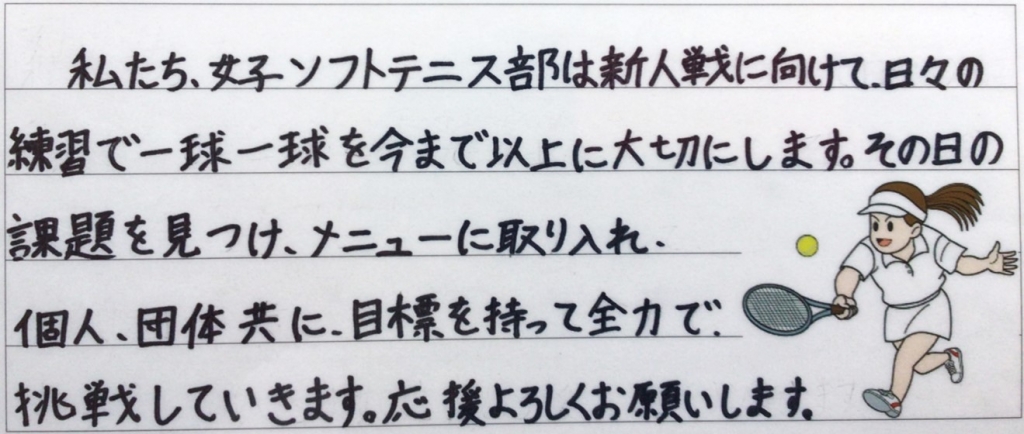 私たち、女子ソフトテニス部は新人戦に向けて、日々の
練習で一球一球を今まで以上に大切にします。その日の
課題を見つけ、メニューに取り入れ、
個人、団体共に、目標を持って全力で、
挑戦していきます。応援よろしくお願いします。